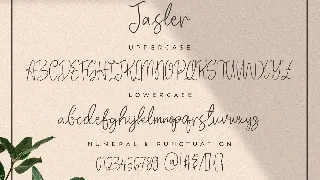 Jasler
UPPERCASE
ABCDEFGHIJKLMNOPQRSTUVWXYZ
LOWERCASE
abcdefghijklmnopqrstuvwxyz
NUMERAL & PUNCTUATION
0123456789 @!#&/[]{}